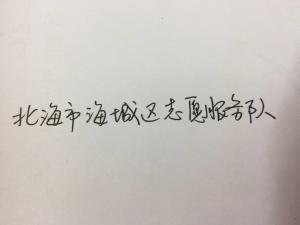 北海市海城区志愿服务队